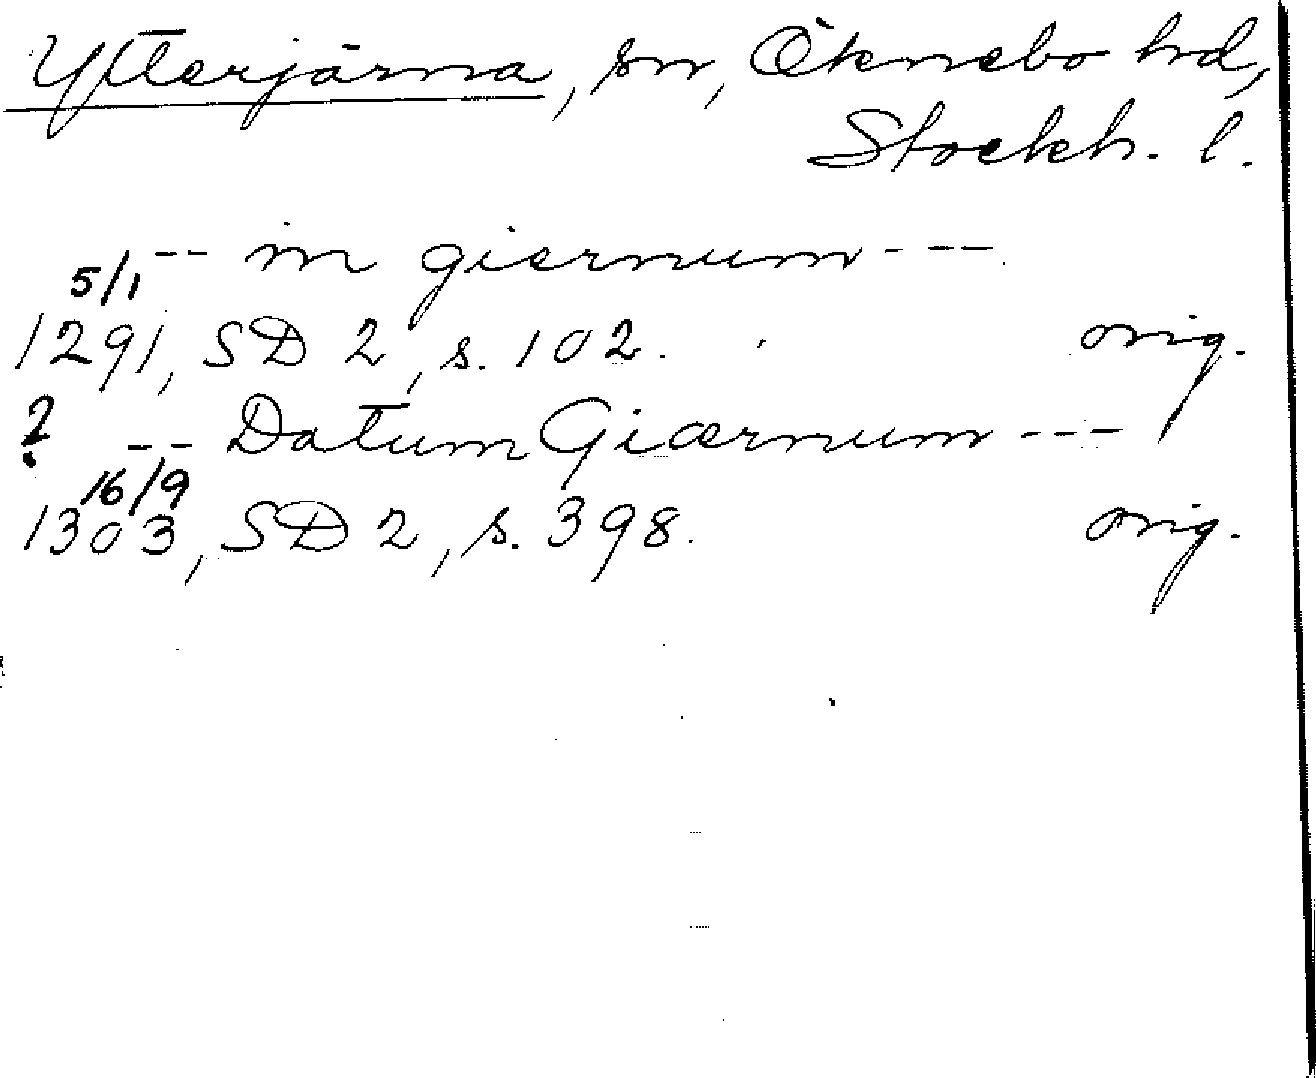 Ytterjärna, sn, Öknebo hd,
Stockh. l.
-- in giernum ---
5/1
1291, SD 2, s. 102. orig.
? -- Datum Giærnum ---
16/9
1303, SD 2, s. 398. orig.